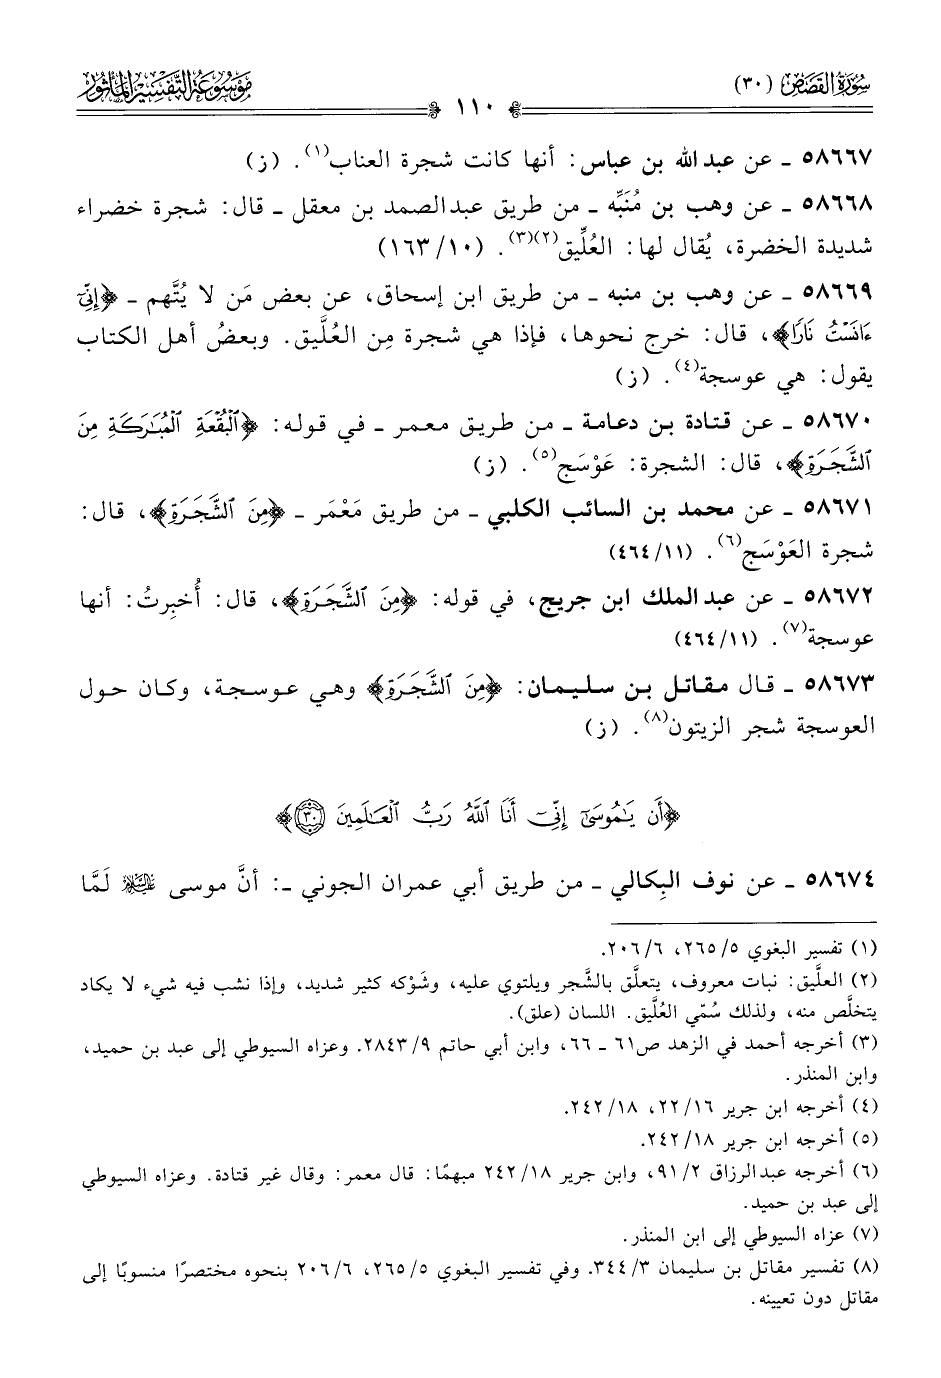 سُورَةُ القَصَصِ (٣٠)
١١٠
مَوْسُوعَةُ التَّفْسِيرِ المَأْثُورِ
٥٨٦٦٧ ـ عن عبد الله بن عباس: أنها كانت شجرة العناب(١). (ز)
٥٨٦٦٨ ـ عن وهب بن مُنَبِّه ـ من طريق عبد الصمد بن معقل ـ قال: شجرة خضراء
شديدة الخضرة، يُقال لها: العُلِّيق(٢)(٣). (١٠/١٦٣)
٥٨٦٦٩ ـ عن وهب بن منبه ـ من طريق ابن إسحاق، عن بعض مَن لا يُتَّهم ـ ﴿إِنِّيٓ
ءَانَسْتُ نَارًا﴾، قال: خرج نحوها، فإذا هي شجرة مِن العُلَّيق. وبعضُ أهل الكتاب
يقول: هي عوسجة(٤). (ز)
٥٨٦٧٠ ـ عن قتادة بن دعامة ـ من طريق معمر ـ في قوله: ﴿ٱلْبُقْعَةِ ٱلْمُبَٰرَكَةِ مِنَ
ٱلشَّجَرَةِ﴾، قال: الشجرة: عَوْسَج(٥). (ز)
٥٨٦٧١ ـ عن محمد بن السائب الكلبي ـ من طريق مَعْمَر ـ ﴿مِنَ ٱلشَّجَرَةِ﴾، قال:
شجرة العَوْسَج(٦). (١١/٤٦٤)
٥٨٦٧٢ ـ عن عبد الملك ابن جريج، في قوله: ﴿مِنَ ٱلشَّجَرَةِ﴾، قال: أُخبِرتُ: أنها
عوسجة(٧). (١١/٤٦٤)
٥٨٦٧٣ ـ قال مقاتل بن سليمان: ﴿مِنَ ٱلشَّجَرَةِ﴾ وهي عوسجة، وكان حول
العوسجة شجر الزيتون(٨). (ز)
﴿أَن يَٰمُوسَىٰٓ إِنِّيٓ أَنَا ٱللَّهُ رَبُّ ٱلْعَٰلَمِينَ ٣٠﴾
٥٨٦٧٤ ـ عن نوف البِكالي ـ من طريق أبي عمران الجوني ـ: أنَّ موسى عليه السلام لَمَّا
(١) تفسير البغوي ٥/٢٦٥، ٦/٢٠٦.
(٢) العلَّيق: نبات معروف، يتعلَّق بالشَّجر ويلتوي عليه، وشَوْكه كثير شديد، وإذا نشب فيه شيء لا يكاد
يتخلَّص منه، ولذلك سُمّي العُلَّيق. اللسان (علق).
(٣) أخرجه أحمد في الزهد ص٦١ ـ ٦٦، وابن أبي حاتم ٩/٢٨٤٣. وعزاه السيوطي إلى عبد بن حميد،
وابن المنذر.
(٤) أخرجه ابن جرير ١٦/٢٢، ١٨/٢٤٢.
(٥) أخرجه ابن جرير ١٨/٢٤٢.
(٦) أخرجه عبد الرزاق ٢/٩١، وابن جرير ١٨/٢٤٢ مبهمًا: قال معمر: وقال غير قتادة. وعزاه السيوطي
إلى عبد بن حميد.
(٧) عزاه السيوطي إلى ابن المنذر.
(٨) تفسير مقاتل بن سليمان ٣/٣٤٤. وفي تفسير البغوي ٥/٢٦٥، ٦/٢٠٦ بنحوه مختصرًا منسوبًا إلى
مقاتل دون تعيينه.